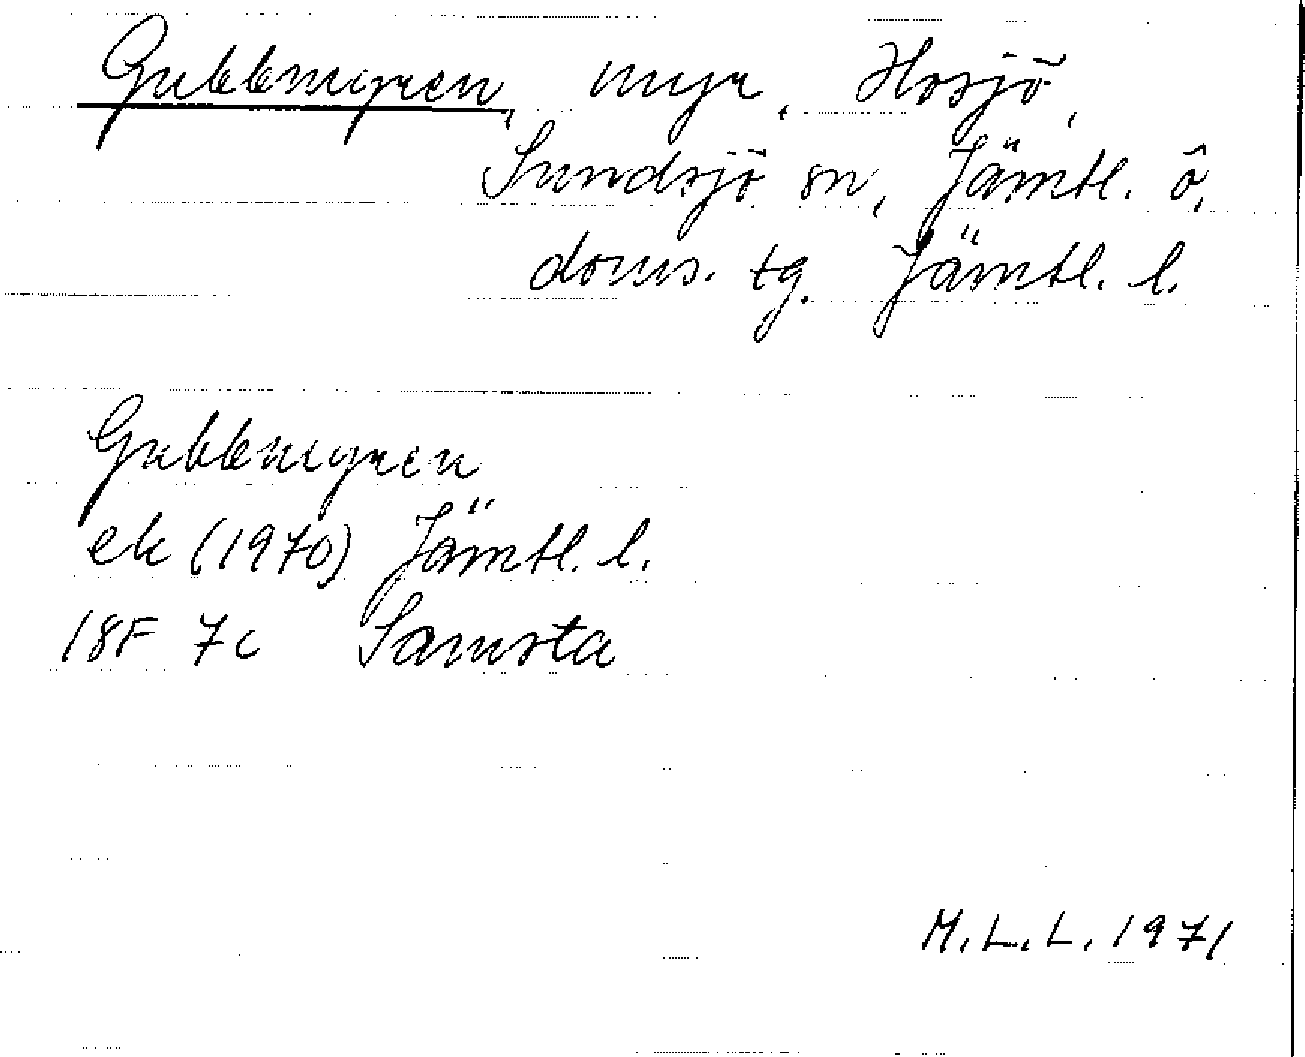 Gubbmyren, myr, Hosjö,
Sundsjö sn, Jämtl. ö.
doms. tg. Jämtl. l.
Gubbmyren
ek (1970) Jämtl. l.
18F 7c Samsta
M.L.L. 1971